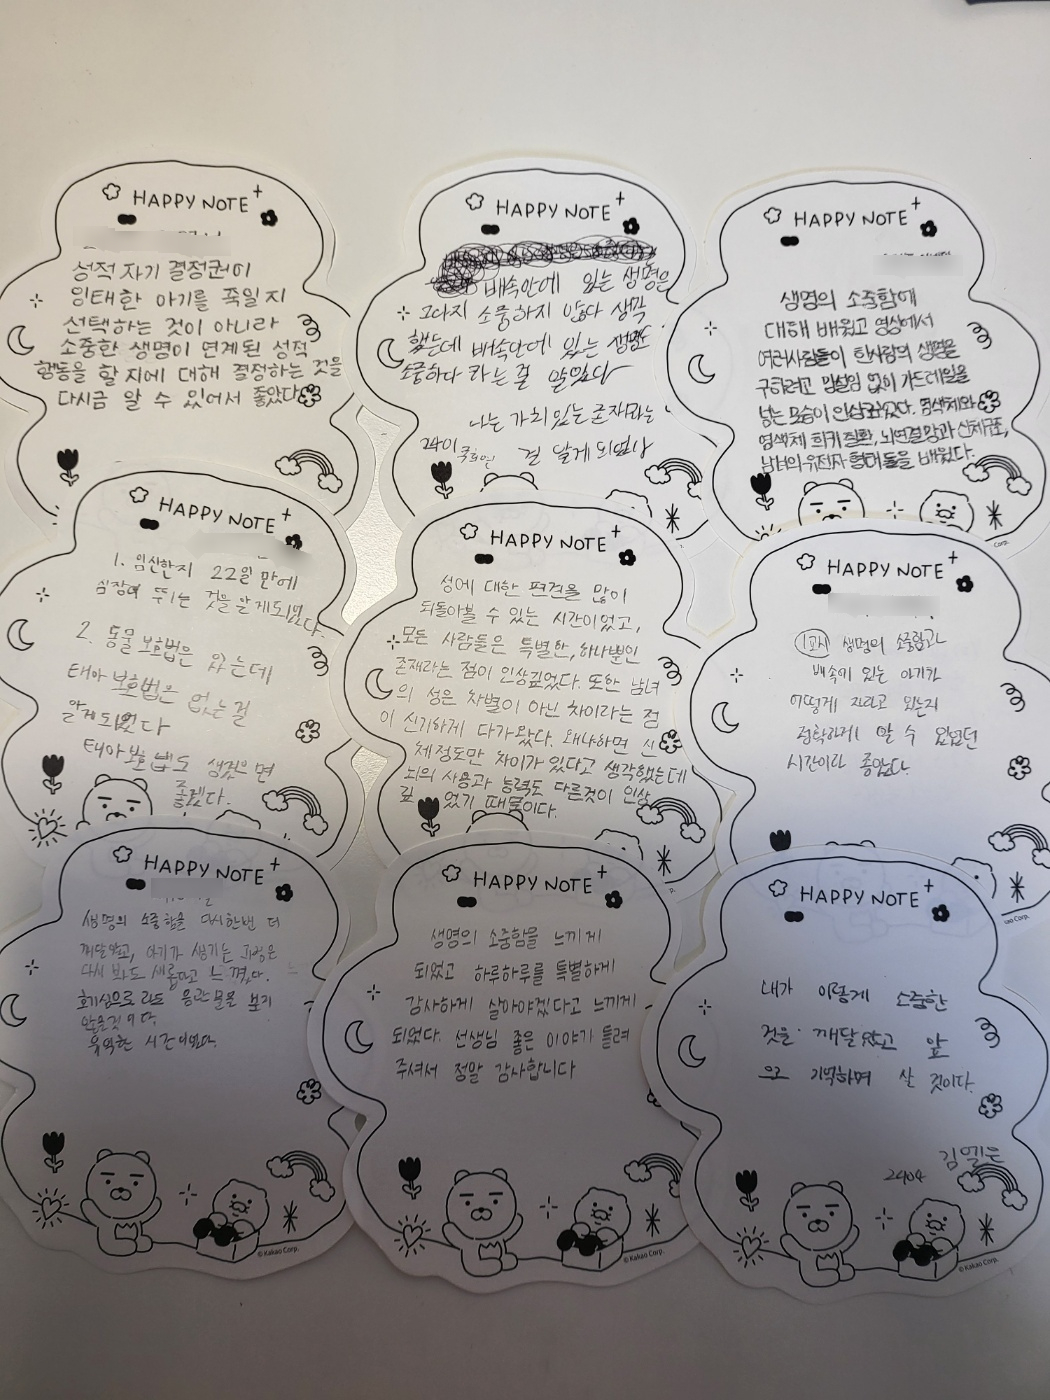 HAPPY NOTE
성적 자기 결정권이
잉태한 아기를 죽일지
선택하는 것이 아니라
소중한 생명이 연계된 성적
행동을 할 지에 대해 결정하는 것을
다시금 알 수 있어서 좋았다
HAPPY NOTE
배속안에 있는 생명은
그다지 소중하지 않다 생각
했는데 배속안에 있는 생명도
소중하다 라는 걸 알았다
나는 가치있는 존재라는
걸 알게 되었다
HAPPY NOTE
생명의 소중함에
대해 배웠고 영상에서
여러사람들이 한사람의 생명을
구하려고 망설임 없이 가드레일을
넘는 모습이 인상깊었다. 염색체와
염색체 희귀 질환, 뇌연결망과 신체구조,
남녀의 유전자 형태 등을 배웠다.
Corp.
HAPPY NOTE
1. 임신한지 22일 만에
심장이 뛰는 것을 알게되었다.
2. 동물 보호법은 있는데
태아 보호법은 없는걸
알게 되었다
태아 보호법도 생겼으면
좋겠다.
HAPPY NOTE
성에 대한 편견을 많이
되돌아볼 수 있는 시간이었고,
모든 사람들은 특별한, 하나뿐인
존재라는 점이 인상깊었다. 또한 남녀
의 성은 차별이 아닌 차이라는 점
이 신기하게 다가왔다. 왜냐하면 신
체정도만 차이가 있다고 생각했는데
뇌의 사용과 능력도 다른것이 인상
깊었기 때문이다.
HAPPY NOTE
1교시 생명의 소중함과
배속에 있는 아기가
어떻게 자라고 있는지
정확하게 알 수 있었던
시간이라 좋았다.
Corp.
HAPPY NOTE
생명의 소중함을 다시한번 더
깨달았고, 아기가 생기는 과정은
다시 봐도 새롭다고 느꼈다.
호기심으로라도 음란물을 보지
않을것이다.
유익한 시간이었다.
© Kakao Corp.
HAPPY NOTE
생명의 소중함을 느끼게
되었고 하루하루를 특별하게
감사하게 살아야겠다고 느끼게
되었다. 선생님 좋은 이야기 들려
주셔서 정말 감사합니다
© Kakao Corp.
HAPPY NOTE
내가 이렇게 소중한
것을 깨달았고 앞
으로 기억하며 살 것이다.
2404
© Kakao Corp.